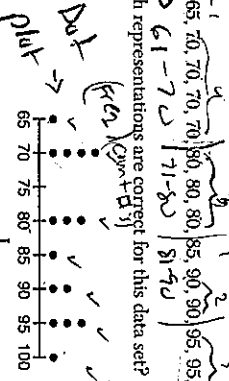 65, 70, 70, 70, 70, 80, 80, 80, 80, 85, 90, 90, 95, 95,
4 1 2
61-70 71-80 81-90
h representations are correct for this data set?
Dot
plot →
65 70 75 80 85 90 95 100